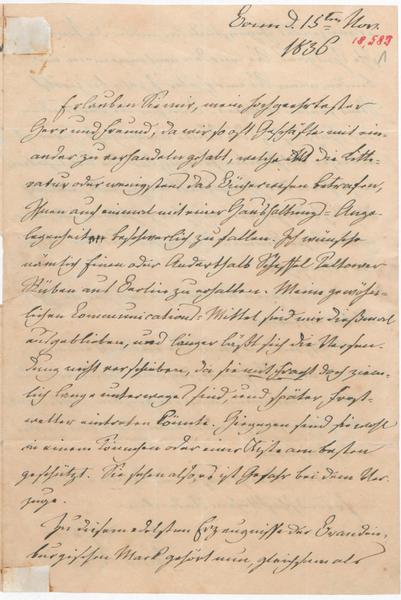 Bonn d. 15ten Nov.
1836
18,583
Erlauben Sie mir, mein hochgeehrtester
Herr und Freund, da wir so oft Geschäfte mit ein-
ander zu verhandeln gehabt, welche die Litte-
ratur oder wenigstens das Bücherwesen betrafen,
Ihnen auch einmal mit einer Haushaltungs-Ange-
legenheit beschwerlich zu fallen. Ich wünsche
nämlich Einen oder Anderthalb Scheffel Teltower
Rüben aus Berlin zu erhalten. Meine gewöhn-
lichen Communications-Mittel sind mir dießmal
ausgeblieben, und länger läßt sich die Versen-
dung nicht verschieben, da sie mit Fracht doch ziem-
lich lange unterweges sind, und später Frost-
wetter eintreten könnte. Hiegegen sind sie wohl
in einem Tönnchen oder einer Kiste am besten
geschützt. Sie sehen also, es ist Gefahr bei dem Ver-
zuge.
Zu diesem edelsten Erzeugnisse der Branden-
burgischen Mark gehört nun gleichsam als